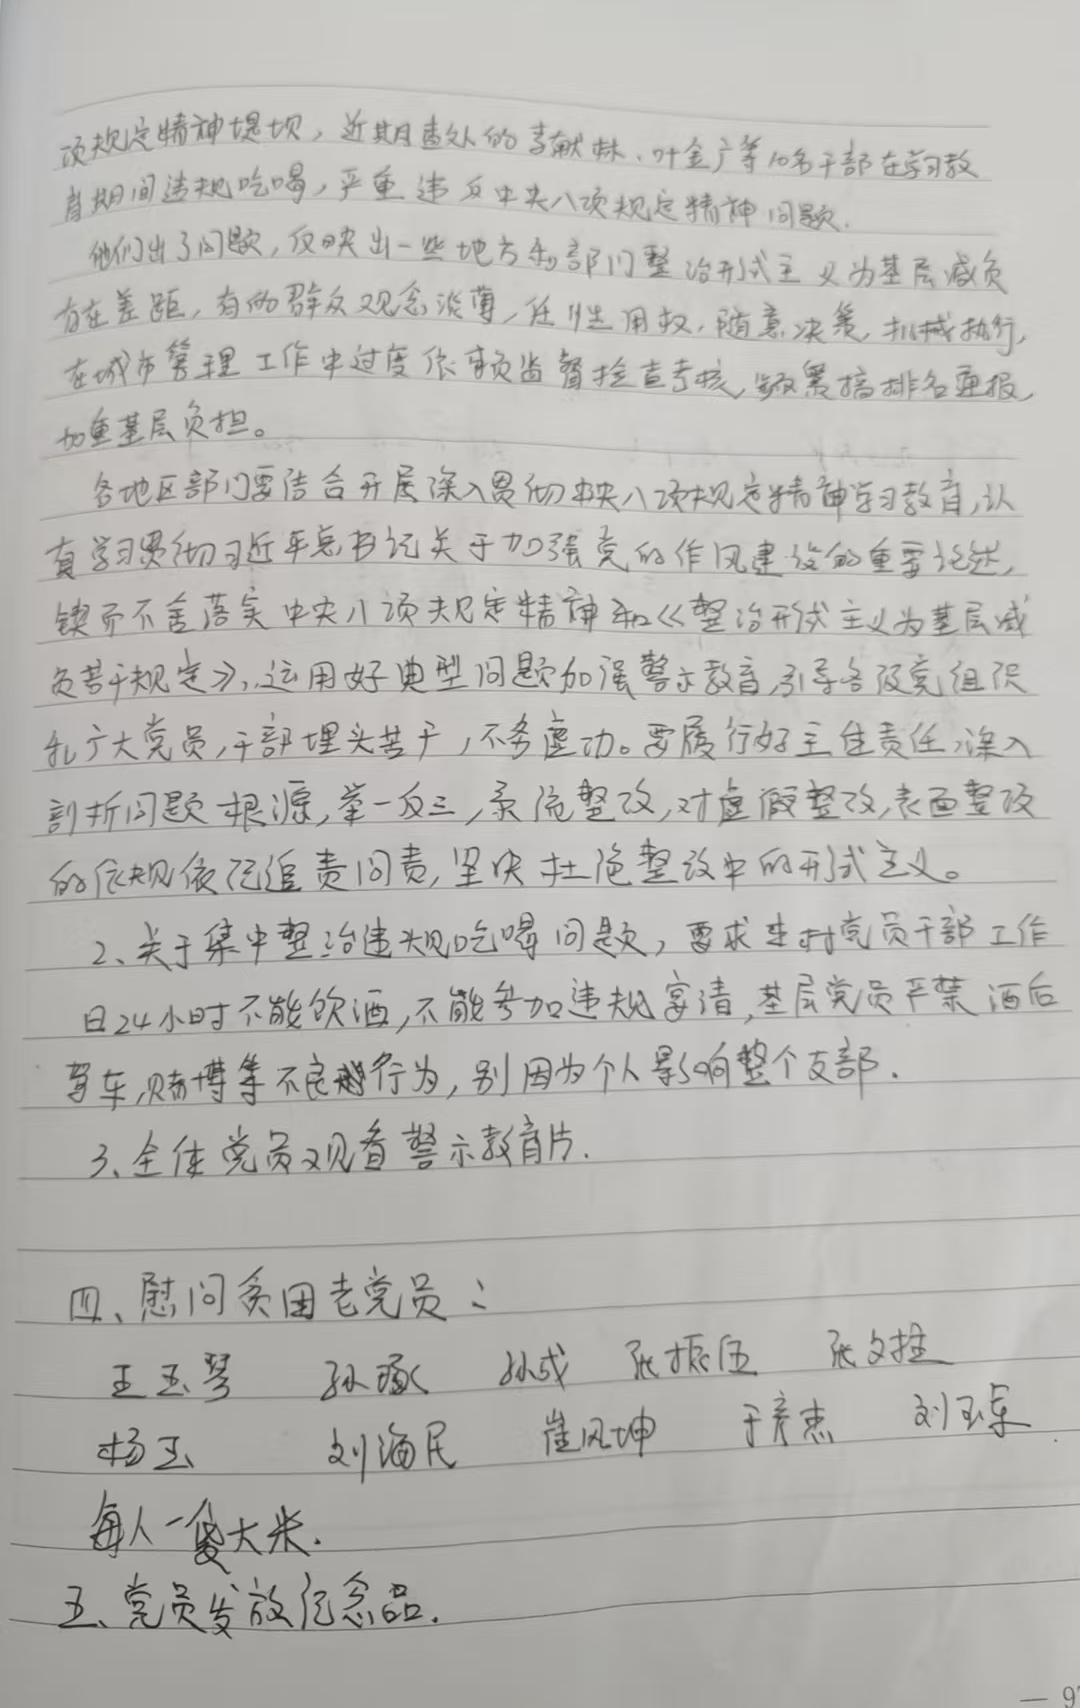 项规定精神堤坝，近期查处的李献林、叶金广等10名干部在学习教
育期间违规吃喝，严重违反中央八项规定精神问题.
他们出了问题，反映出一些地方和部门整治形式主义为基层减负
存在差距，有的群众观念淡薄，任性用权，随意决策，机械执行，
在城市管理工作中过度依赖监督检查考核，频繁搞排名通报，
加重基层负担。
各地区部门要结合开展深入贯彻中央八项规定精神学习教育，认
真学习贯彻习近平总书记关于加强党的作风建设的重要论述，
锲而不舍落实中央八项规定精神和《整治形式主义为基层减
负若干规定》，运用好典型问题加强警示教育，引导各级党组织
和广大党员，干部埋头苦干，不务虚功。要履行好主体责任，深入
剖析问题根源，举一反三，系统整改，对虚假整改，表面整改
的依规依纪追责问责，坚决杜绝整改中的形式主义。
2、关于集中整治违规吃喝问题，要求生村党员干部工作
日24小时不能饮酒，不能参加违规宴请，基层党员严禁酒后
驾车，赌博等不良行为，别因为个人影响整个支部.
3、全体党员观看警示教育片.
四、慰问贫困老党员：
王玉琴 孙琢 孙成 张振伍 张文柱
杨玉 刘海民 崔凤坤 于彦杰 刘玉
每人一袋大米.
五、党员发放纪念品.